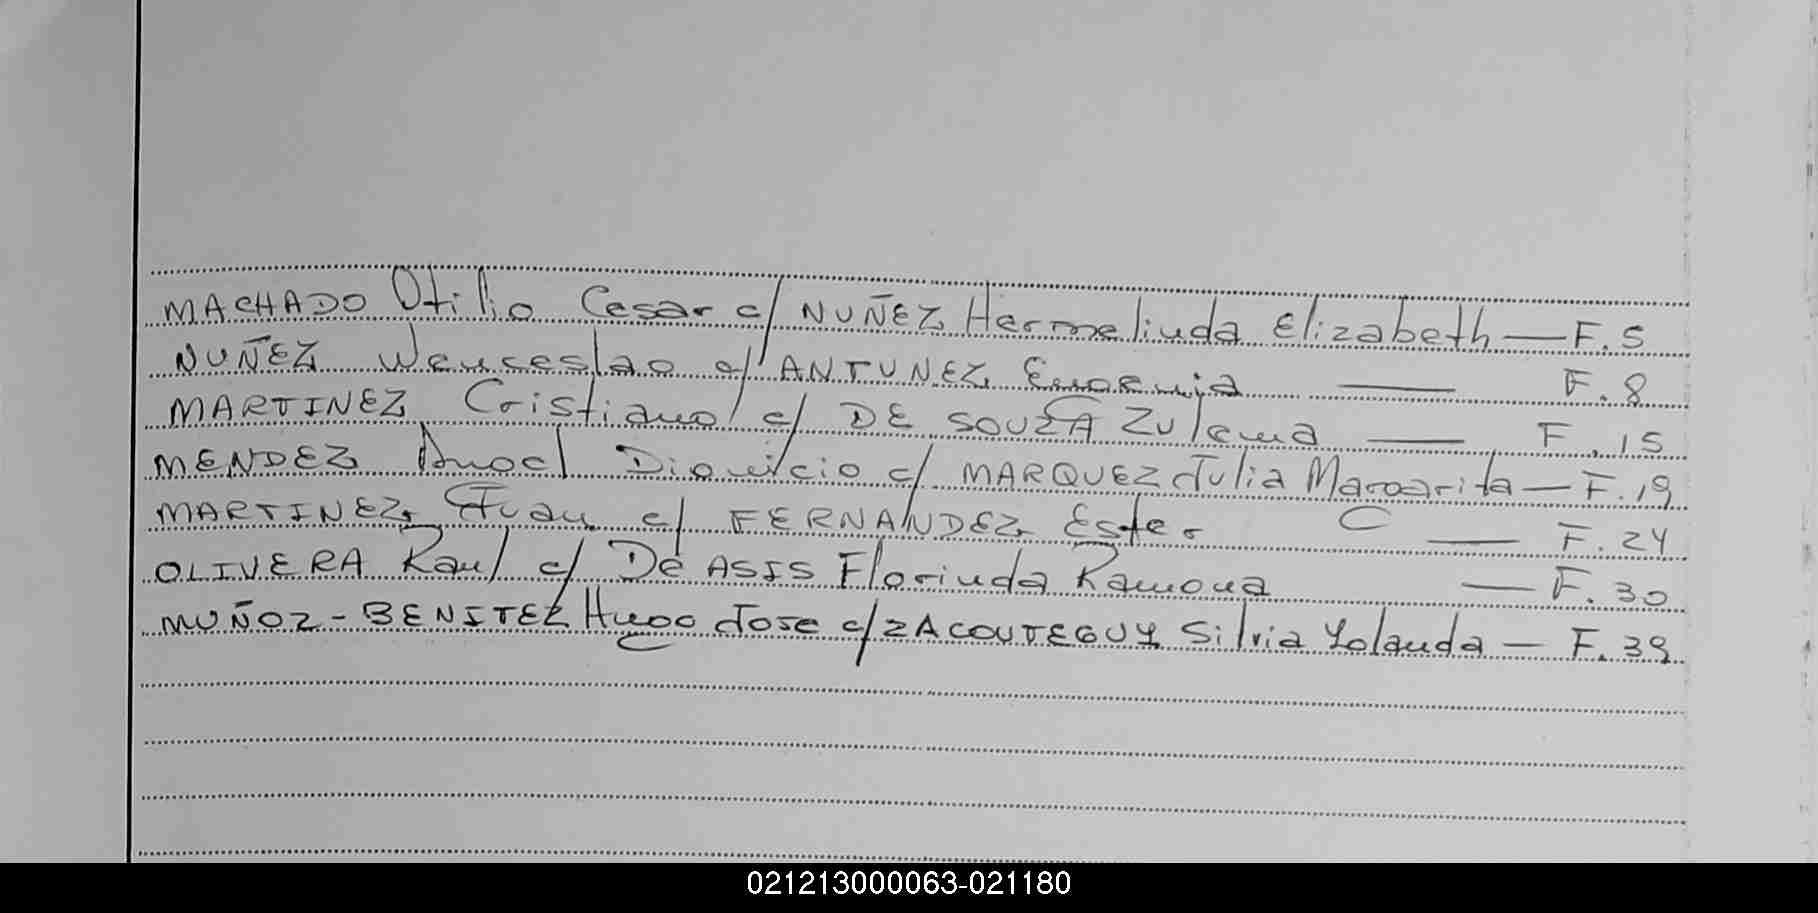 MACHADO Otilio Cesar c/ NUÑEZ Hermelinda Elizabeth — F. 5
NUÑEZ Wenceslao c/ ANTUNEZ Eugenia — F. 8
MARTINEZ Cristiano c/ DE SOUZA Zulema — F. 15
MENDEZ Angel Dionicio c/ MARQUEZ Julia Margarita — F. 19
MARTINEZ Juan c/ FERNANDEZ Ester — F. 24
OLIVERA Raul c/ De ASIS Florinda Ramona — F. 30
MUÑOZ - BENITEZ Hugo Jose c/ ZACOUTEGUY Silvia Yolanda — F. 39
021213000063-021180